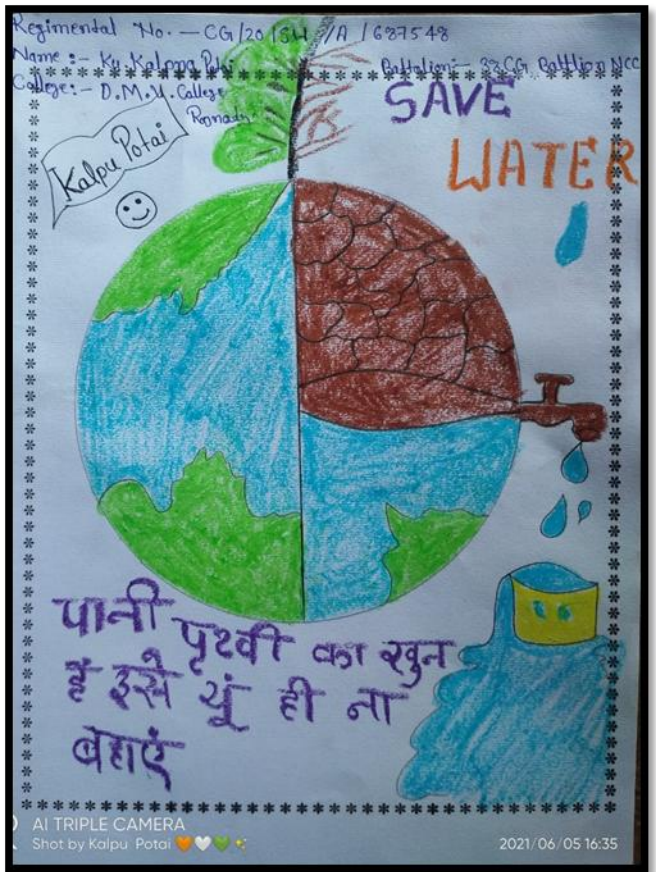 Regimental No. — CG/20/SW/A/687548
Name :- Ku. Kalpna Potai Battalion:- CG Battlion NCC
College:- D.M.U. College
Kalpu Potai
SAVE
WATER
पानी पृथ्वी का खुन
है इसे यूं ही ना
बहाएं
AI TRIPLE CAMERA
Shot by Kalpu Potai 🧡🤍💚
2021/06/05 16:35